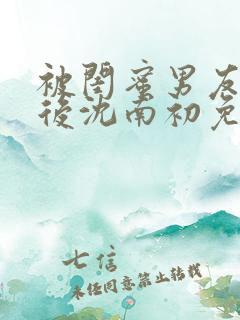 被閨蜜男友
後沈南初免
七信
未经同意禁止转载